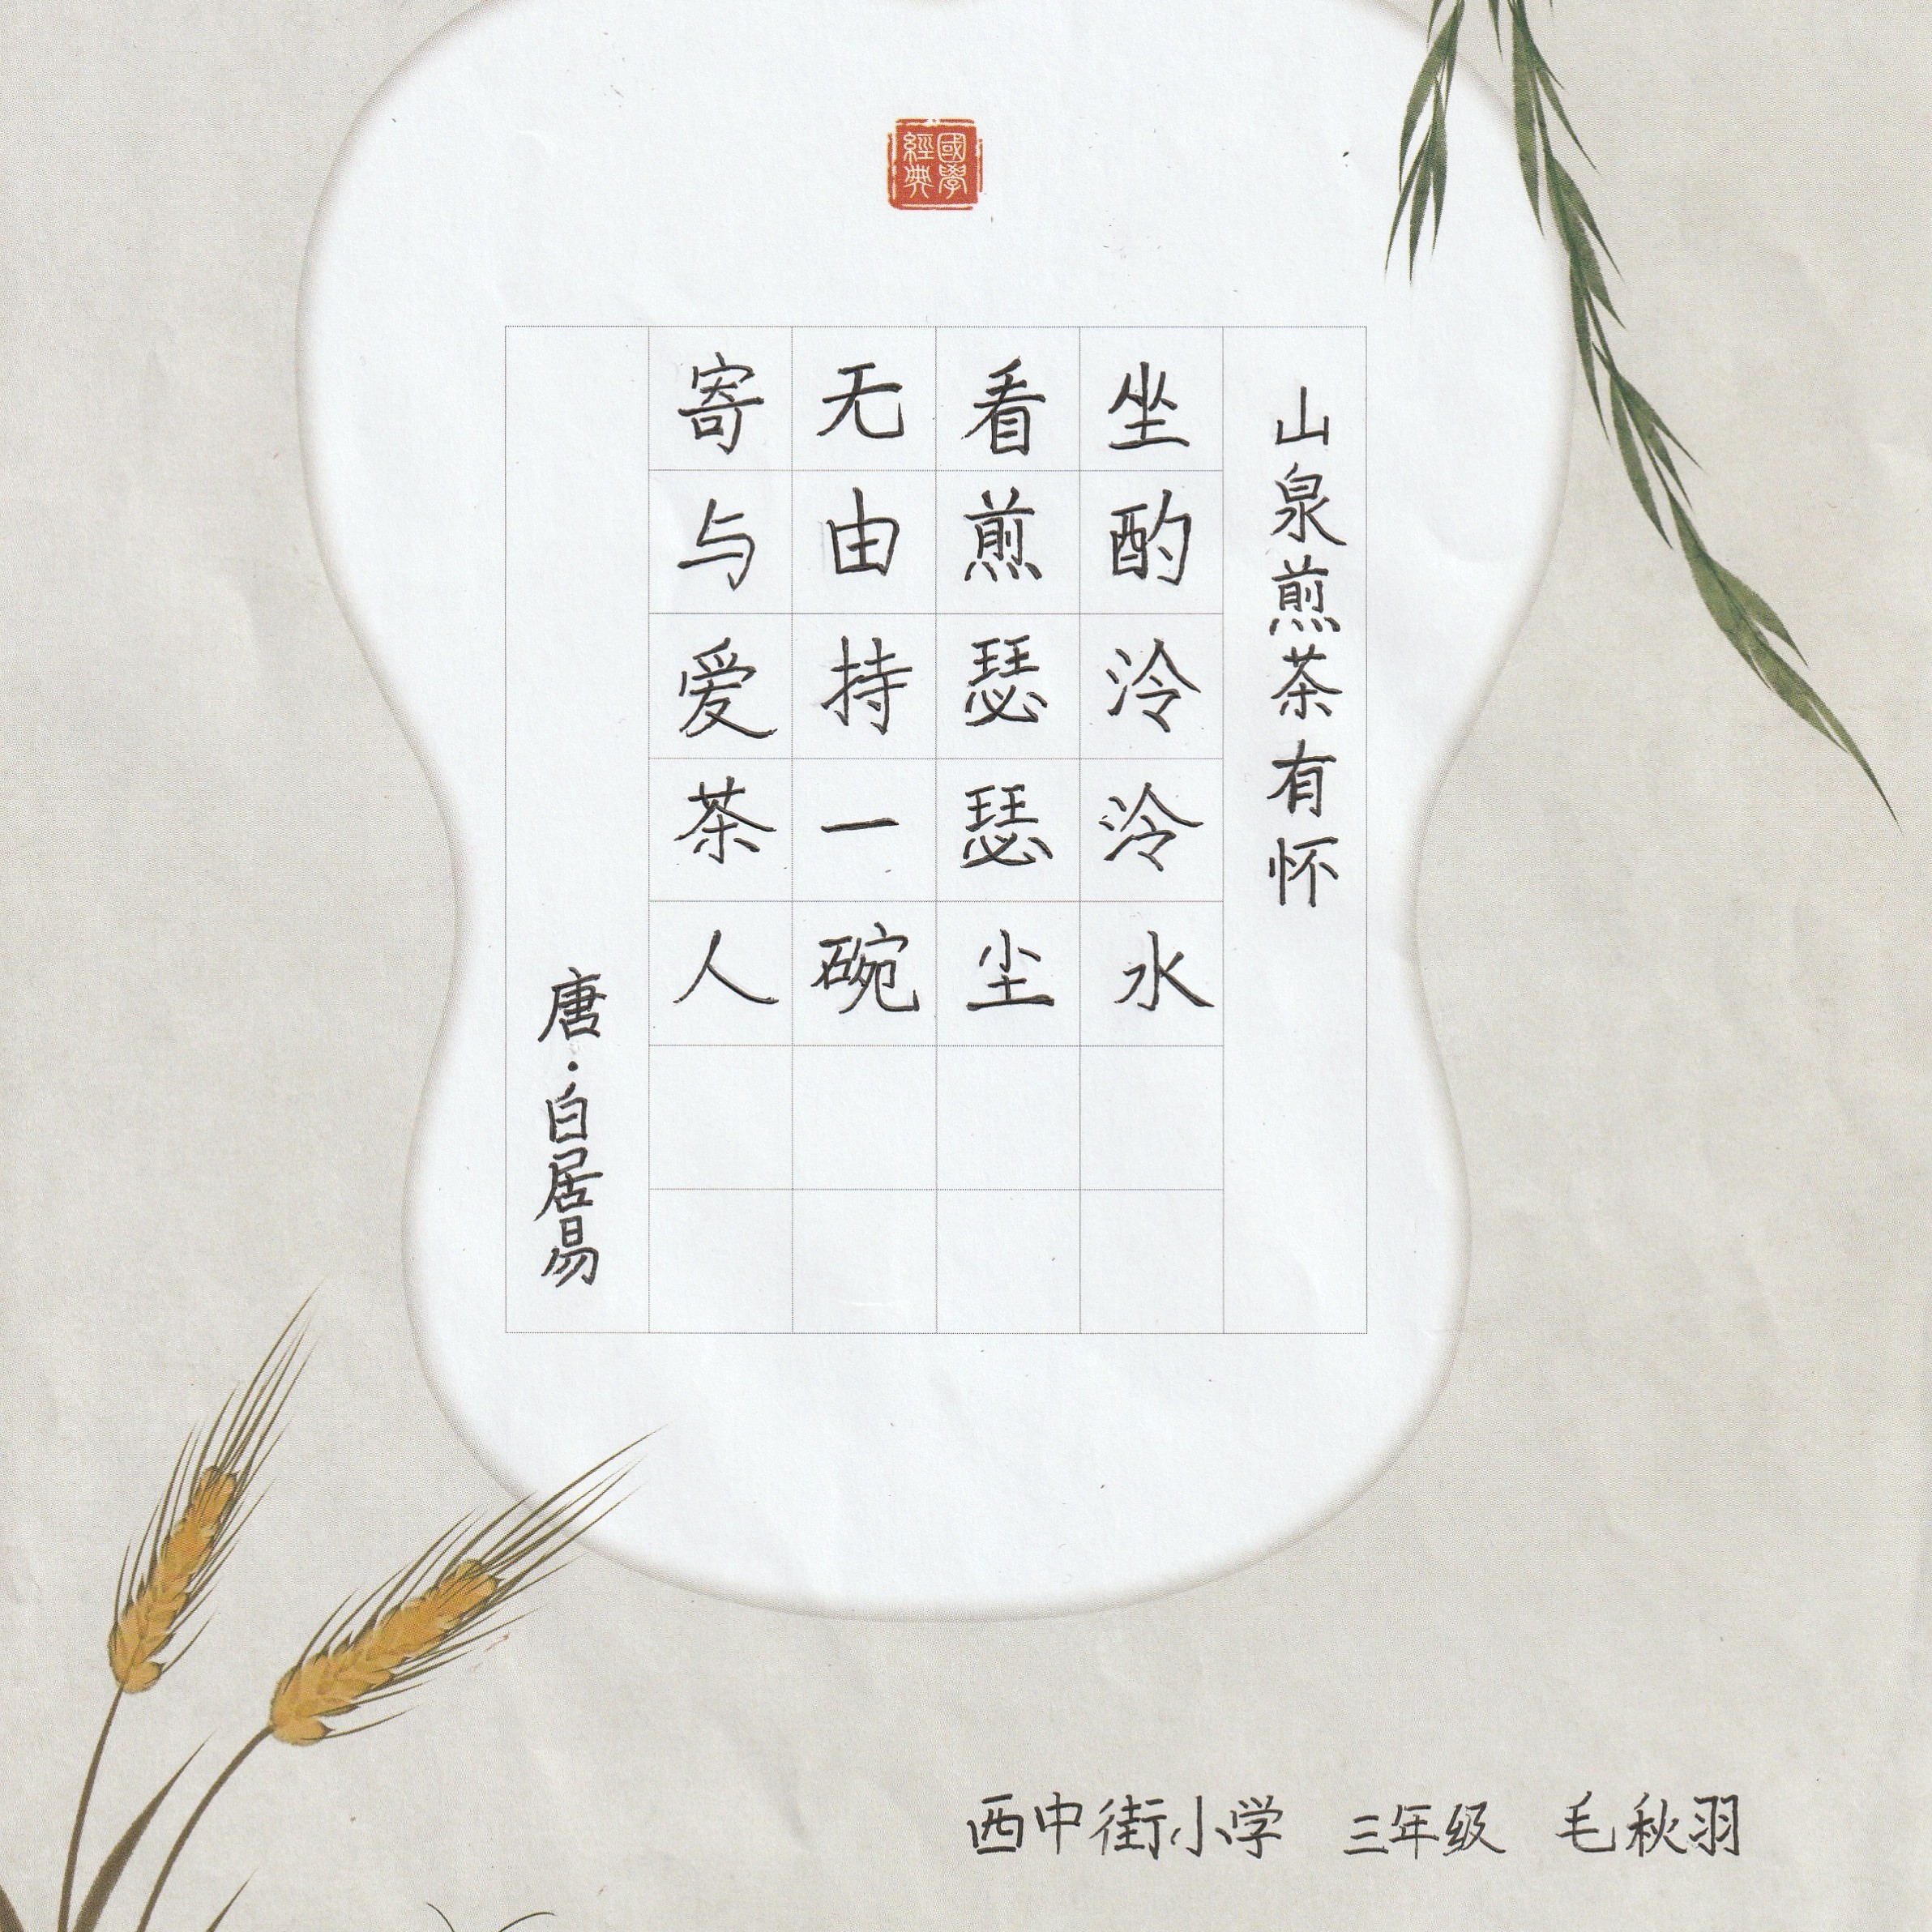 國學經典
山泉煎茶有怀
坐酌泠泠水
看煎瑟瑟尘
无由持一碗
寄与爱茶人
唐·白居易
西中街小学 三年级 毛秋羽